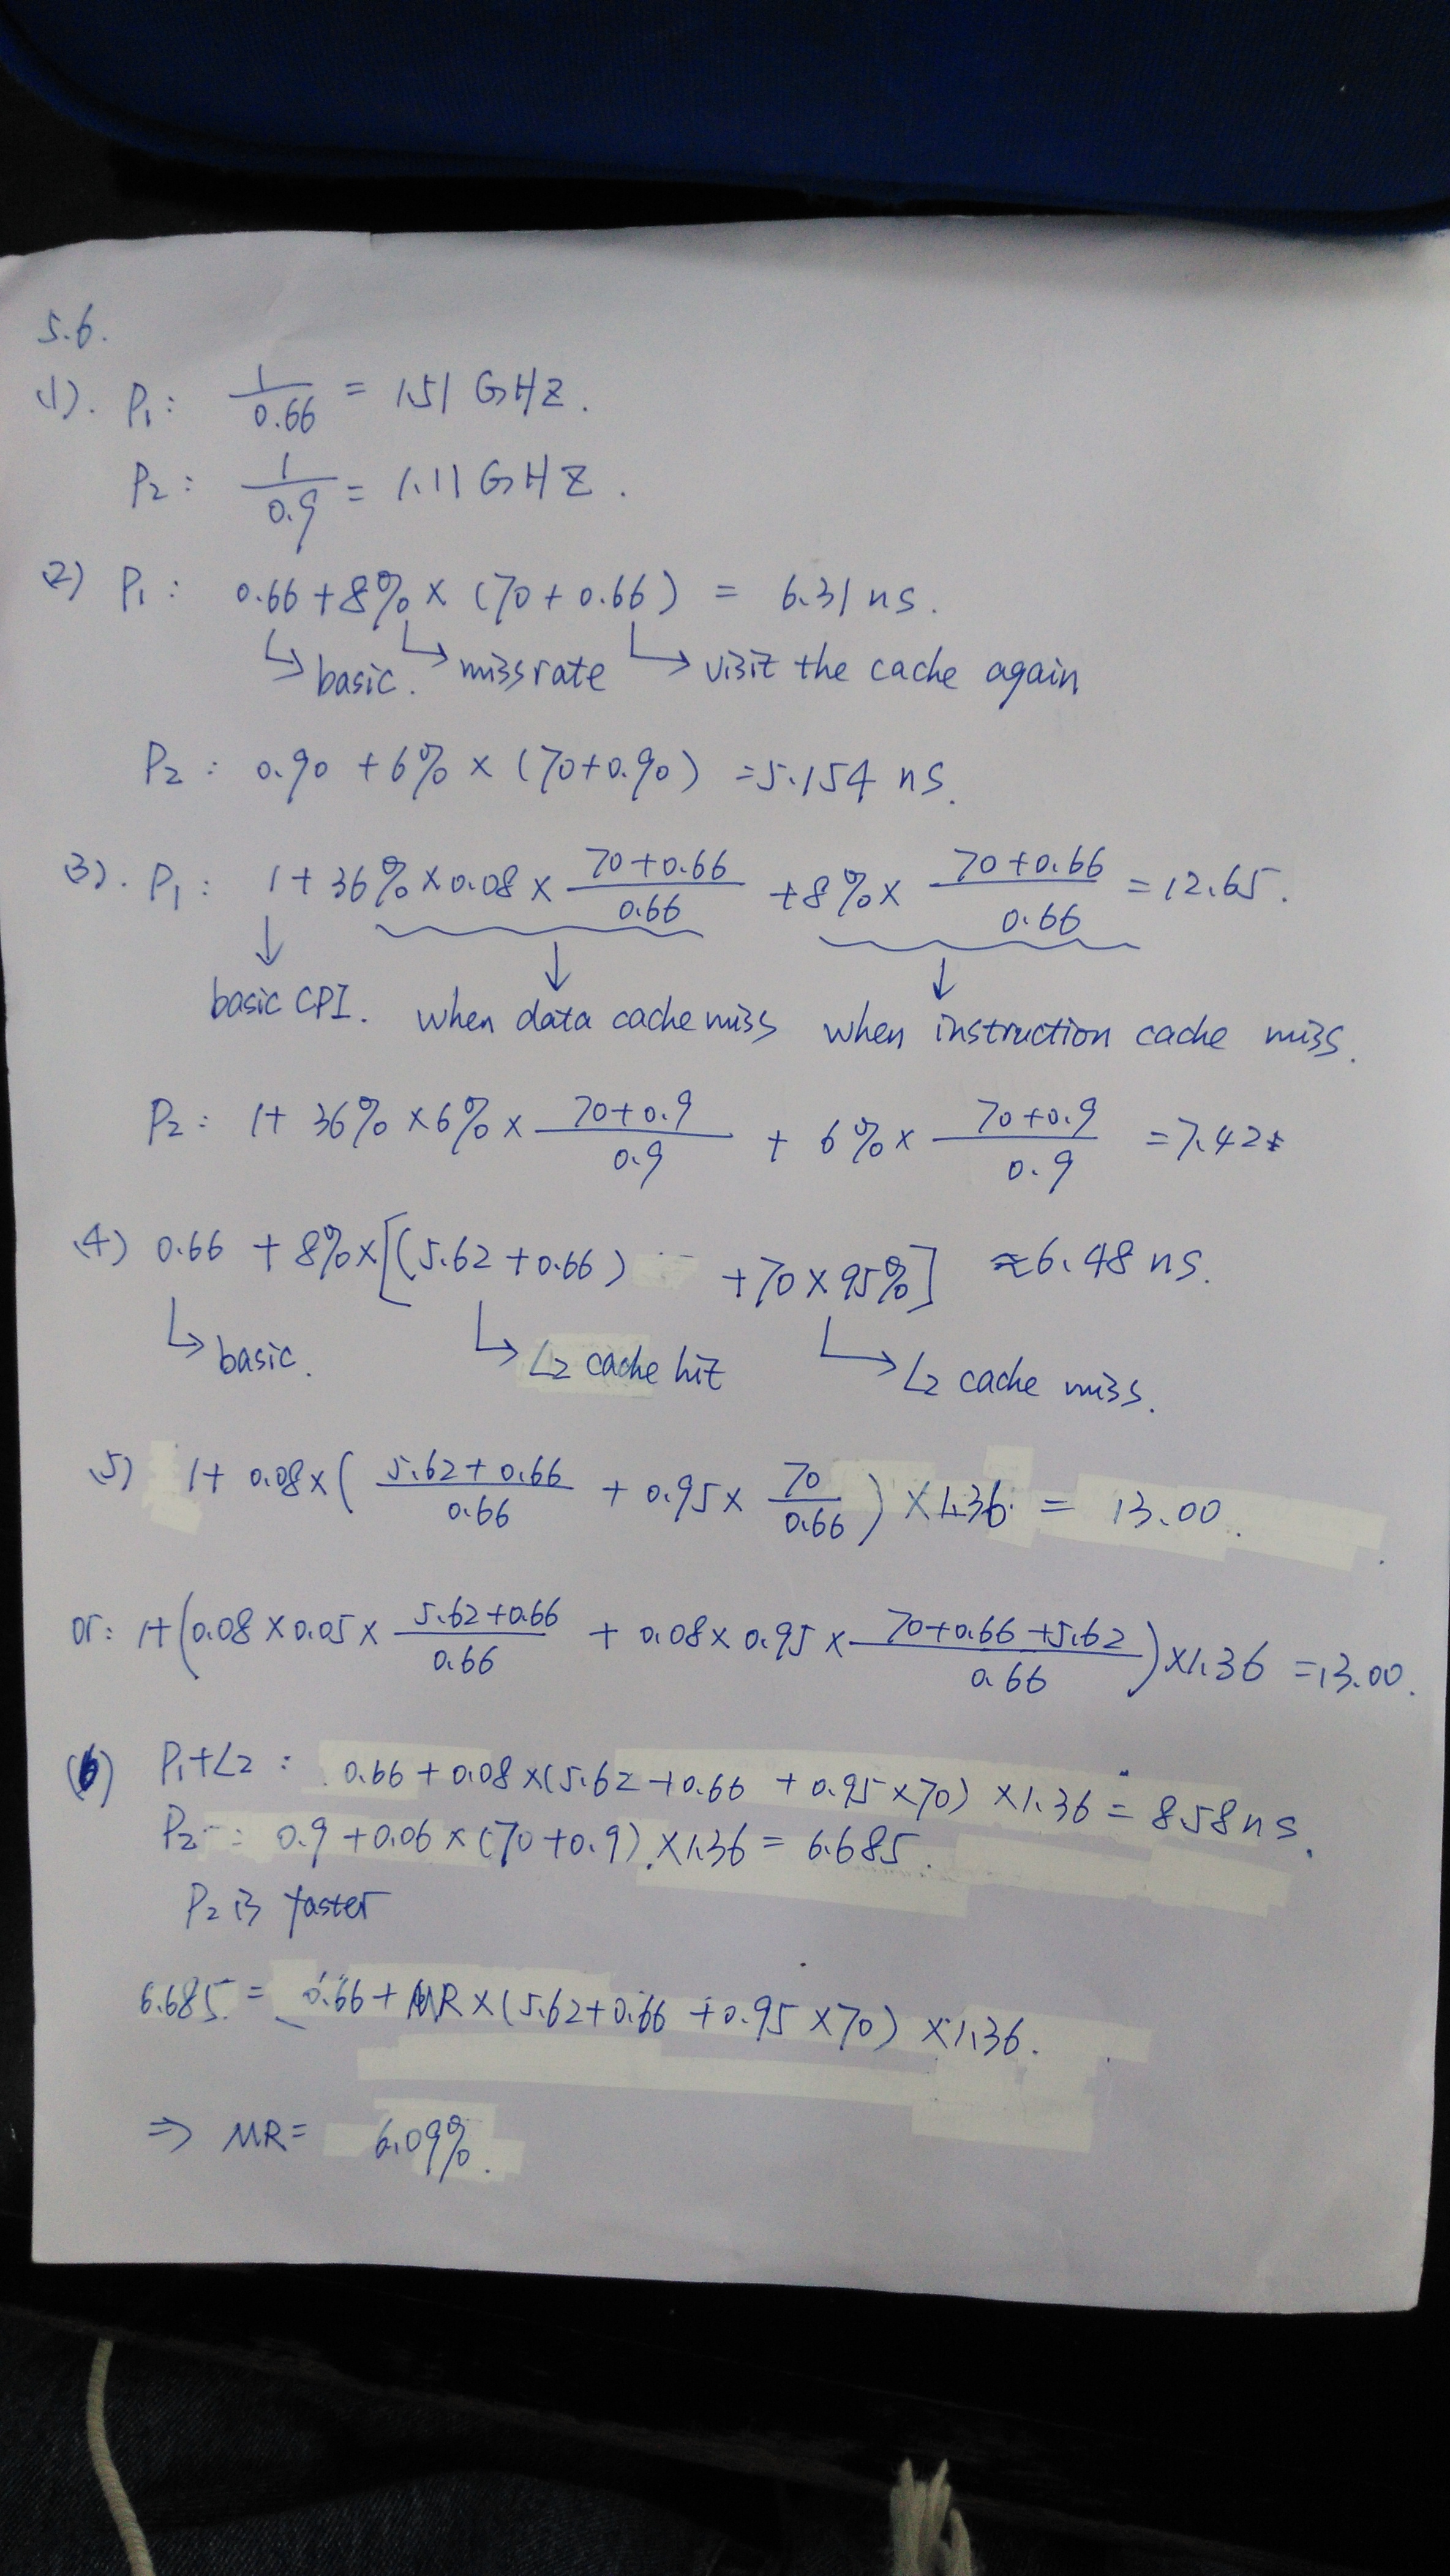 5.6.
(1). P₁: 1/0.66 = 1.51 GHZ.
P₂: 1/0.9 = 1.11 GHZ.
(2) P₁: 0.66 + 8% × (70 + 0.66) = 6.31 ns.
↳ basic. ↳ missrate ↳ visit the cache again
P₂: 0.90 + 6% × (70+0.90) = 5.154 ns.
(3). P₁: 1 + 36% × 0.08 × (70+0.66)/0.66 + 8% × (70+0.66)/0.66 = 12.65.
↓ ↓ ↓
basic CPI. when data cache miss when instruction cache miss.
P₂: 1 + 36% × 6% × (70+0.9)/0.9 + 6% × (70+0.9)/0.9 = 7.42
(4) 0.66 + 8% × [(5.62 + 0.66) + 70 × 95%] ≈ 6.48 ns.
↳ basic. ↳ L2 cache hit ↳ L2 cache miss.
(5) 1 + 0.08 × ( (5.62+0.66)/0.66 + 0.95 × 70/0.66 ) × 1.36 = 13.00.
or: 1+(0.08 × 0.05 × (5.62+0.66)/0.66 + 0.08 × 0.95 × (70+0.66+5.62)/0.66) × 1.36 = 13.00.
(6) P₁+L2: 0.66 + 0.08 × (5.62 + 0.66 + 0.95 × 70) × 1.36 = 8.58 ns.
P₂: 0.9 + 0.06 × (70 + 0.9) × 1.36 = 6.685.
P₂ is faster
6.685 = 0.66 + MR × (5.62 + 0.66 + 0.95 × 70) × 1.36.
⇒ MR = 6.09%.